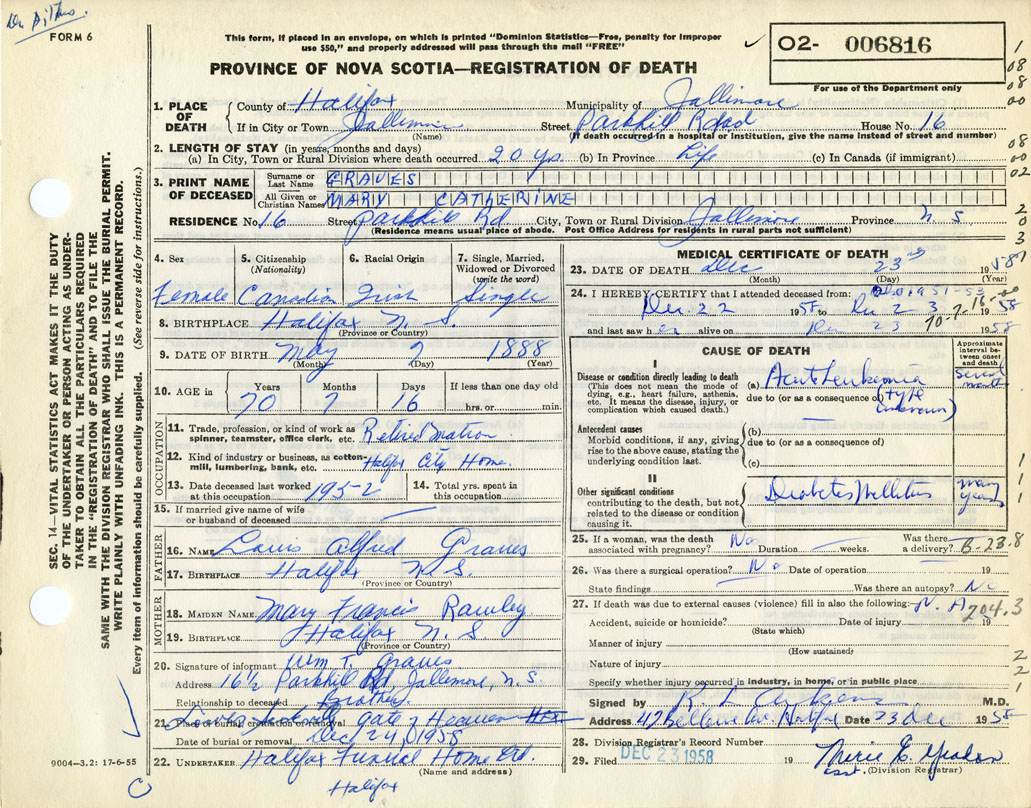 FORM 6
This form, if placed in an envelope, on which is printed "Dominion Statistics—Free, penalty for improper
use $50," and properly addressed will pass through the mail "FREE"
PROVINCE OF NOVA SCOTIA—REGISTRATION OF DEATH
02- 006816
For use of the Department only
1. PLACE OF DEATH County of Halifax Municipality of Jallimore
If in City or Town Jallimore Street Parkhill Road House No. 16
(Name) (If death occurred in a hospital or institution, give the name instead of street and number)
2. LENGTH OF STAY (in years, months and days)
(a) In City, Town or Rural Division where death occurred 20 yrs. (b) In Province Life (c) In Canada (if immigrant)
3. PRINT NAME OF DECEASED Surname or Last Name GRAVES
All Given or Christian Names MARY CATHERINE
RESIDENCE No. 16 Street Parkhill Rd City, Town or Rural Division Jallimore Province N.S
(Residence means usual place of abode. Post Office Address for residents in rural parts not sufficient)
4. Sex Female
5. Citizenship (Nationality) Canadian
6. Racial Origin Irish
7. Single, Married, Widowed or Divorced (write the word) Single
8. BIRTHPLACE Halifax N.S.
(Province or Country)
9. DATE OF BIRTH May 7 1888
(Month) (Day) (Year)
10. AGE in Years 70 Months 7 Days 16 If less than one day old hrs. or min.
OCCUPATION
11. Trade, profession, or kind of work as spinner, teamster, office clerk, etc. Retired Matron
12. Kind of industry or business, as cotton-mill, lumbering, bank, etc. Halifax City Home.
13. Date deceased last worked at this occupation 1952
14. Total yrs. spent in this occupation
15. If married give name of wife or husband of deceased
FATHER
16. NAME Louis Alfred Graves
17. BIRTHPLACE Halifax N.S.
(Province or Country)
MOTHER
18. MAIDEN NAME Mary Francis Rawley
19. BIRTHPLACE Halifax N.S
(Province or Country)
20. Signature of informant Wm T. Graves
Address 16½ Parkhill Rd, Jallimore, N.S
Relationship to deceased Brother
21. Place of burial, cremation or removal Gate of Heaven
Date of burial or removal Dec 24, 1958
22. UNDERTAKER Halifax Funeral Home Ltd.
(Name and address)
Halifax
9004—3.2: 17-6-55
MEDICAL CERTIFICATE OF DEATH
23. DATE OF DEATH Dec 23rd 1958
(Month) (Day) (Year)
24. I HEREBY CERTIFY that I attended deceased from:
Dec. 22 1958 to Dec 23 1958
and last saw her alive on Dec 23 1958
70-7-16-00
CAUSE OF DEATH
Approximate interval between onset and death
I
Disease or condition directly leading to death
(This does not mean the mode of dying, e.g., heart failure, asthenia, etc. It means the disease, injury, or complication which caused death.)
(a) Acute Leukemia
due to (or as a consequence of) (type unknown)
Antecedent causes
Morbid conditions, if any, giving rise to the above cause, stating the underlying condition last.
(b)
due to (or as a consequence of)
(c)
II
Other significant conditions
contributing to the death, but not related to the disease or condition causing it.
Diabetes Mellitus many years
25. If a woman, was the death associated with pregnancy? No Duration weeks. Was there a delivery?
B-23.8
26. Was there a surgical operation? No Date of operation 19
State findings Was there an autopsy? No
27. If death was due to external causes (violence) fill in also the following: N.A
204.3
Accident, suicide or homicide? Date of injury 19
(State which)
Manner of injury
(How sustained)
Nature of injury
Specify whether injury occurred in industry, in home, or in public place
Signed by M.D.
Address 42 Bellevue Av. Halifax Date 23 Dec 1958
28. Division Registrar's Record Number
29. Filed DEC 23 1958 19
(Division Registrar)
SEC. 14—VITAL STATISTICS ACT MAKES IT THE DUTY
OF THE UNDERTAKER OR PERSON ACTING AS UNDER-
TAKER TO OBTAIN ALL THE PARTICULARS REQUIRED
IN THE "REGISTRATION OF DEATH" AND TO FILE THE
SAME WITH THE DIVISION REGISTRAR WHO SHALL ISSUE THE BURIAL PERMIT.
WRITE PLAINLY WITH UNFADING INK. THIS IS A PERMANENT RECORD.
Every item of information should be carefully supplied. (See reverse side for instructions.)